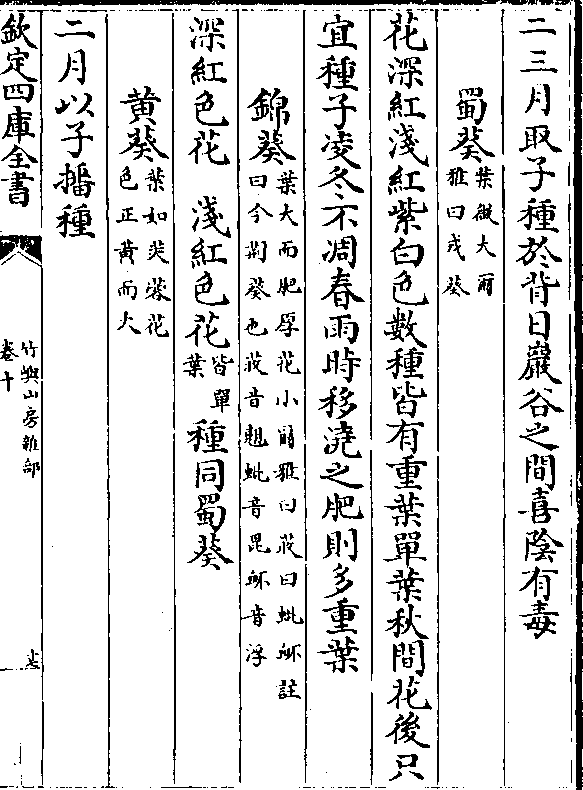 二三月取子種於背日巖谷之間喜陰有毒
蜀葵葉微大爾
雅曰戎葵
花深紅淺紅紫白色數種皆有重葉單葉秋間花後只
宜種子凌冬不凋春雨時移澆之肥則多重葉
錦葵葉大而肥厚花小爾雅曰荍曰蚍衃註
曰今荆葵也荍音翹蚍音毘衃音浮
深紅色花 淺紅色花皆單
葉種同蜀葵
黄葵葉如芙蓉花
色正黄而大
二月以子播種
欽定四庫全書
竹嶼山房雜部
卷十